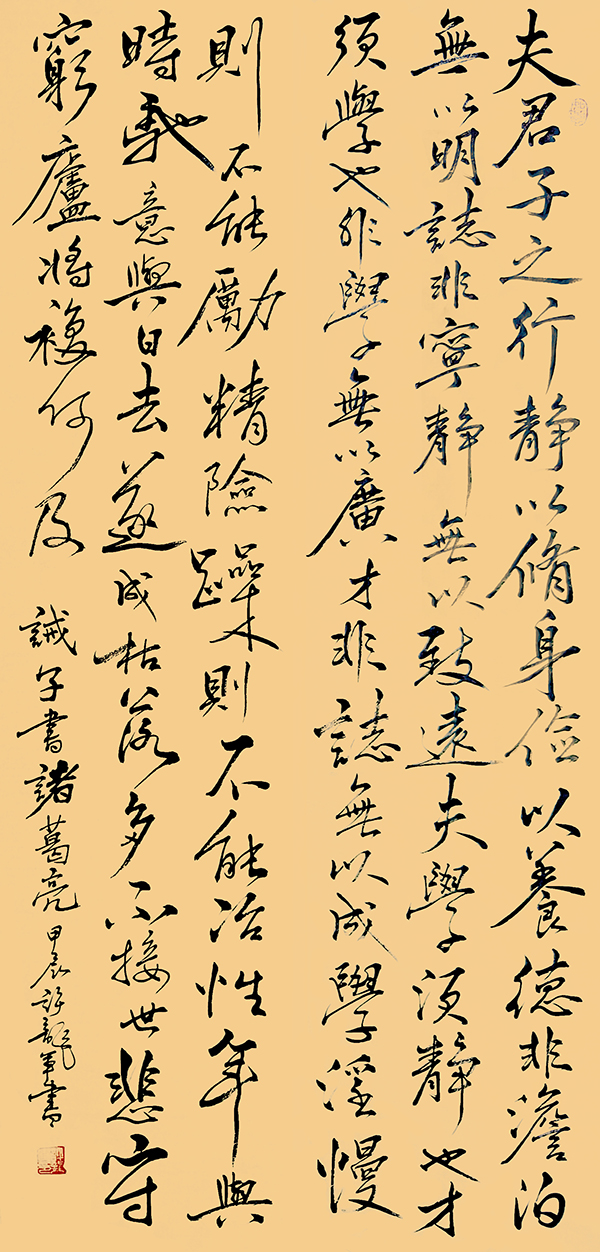 夫君子之行静以脩身儉以養德非澹泊
無以明誌非寧静無以致遠夫學須静也才
須學也非學無以廣才非誌無以成學淫慢
則不能勵精險躁則不能冶性年與
時馳意與日去遂成枯落多不接世悲守
窮廬將複何及 誡子書諸葛亮 甲辰許龍軍書